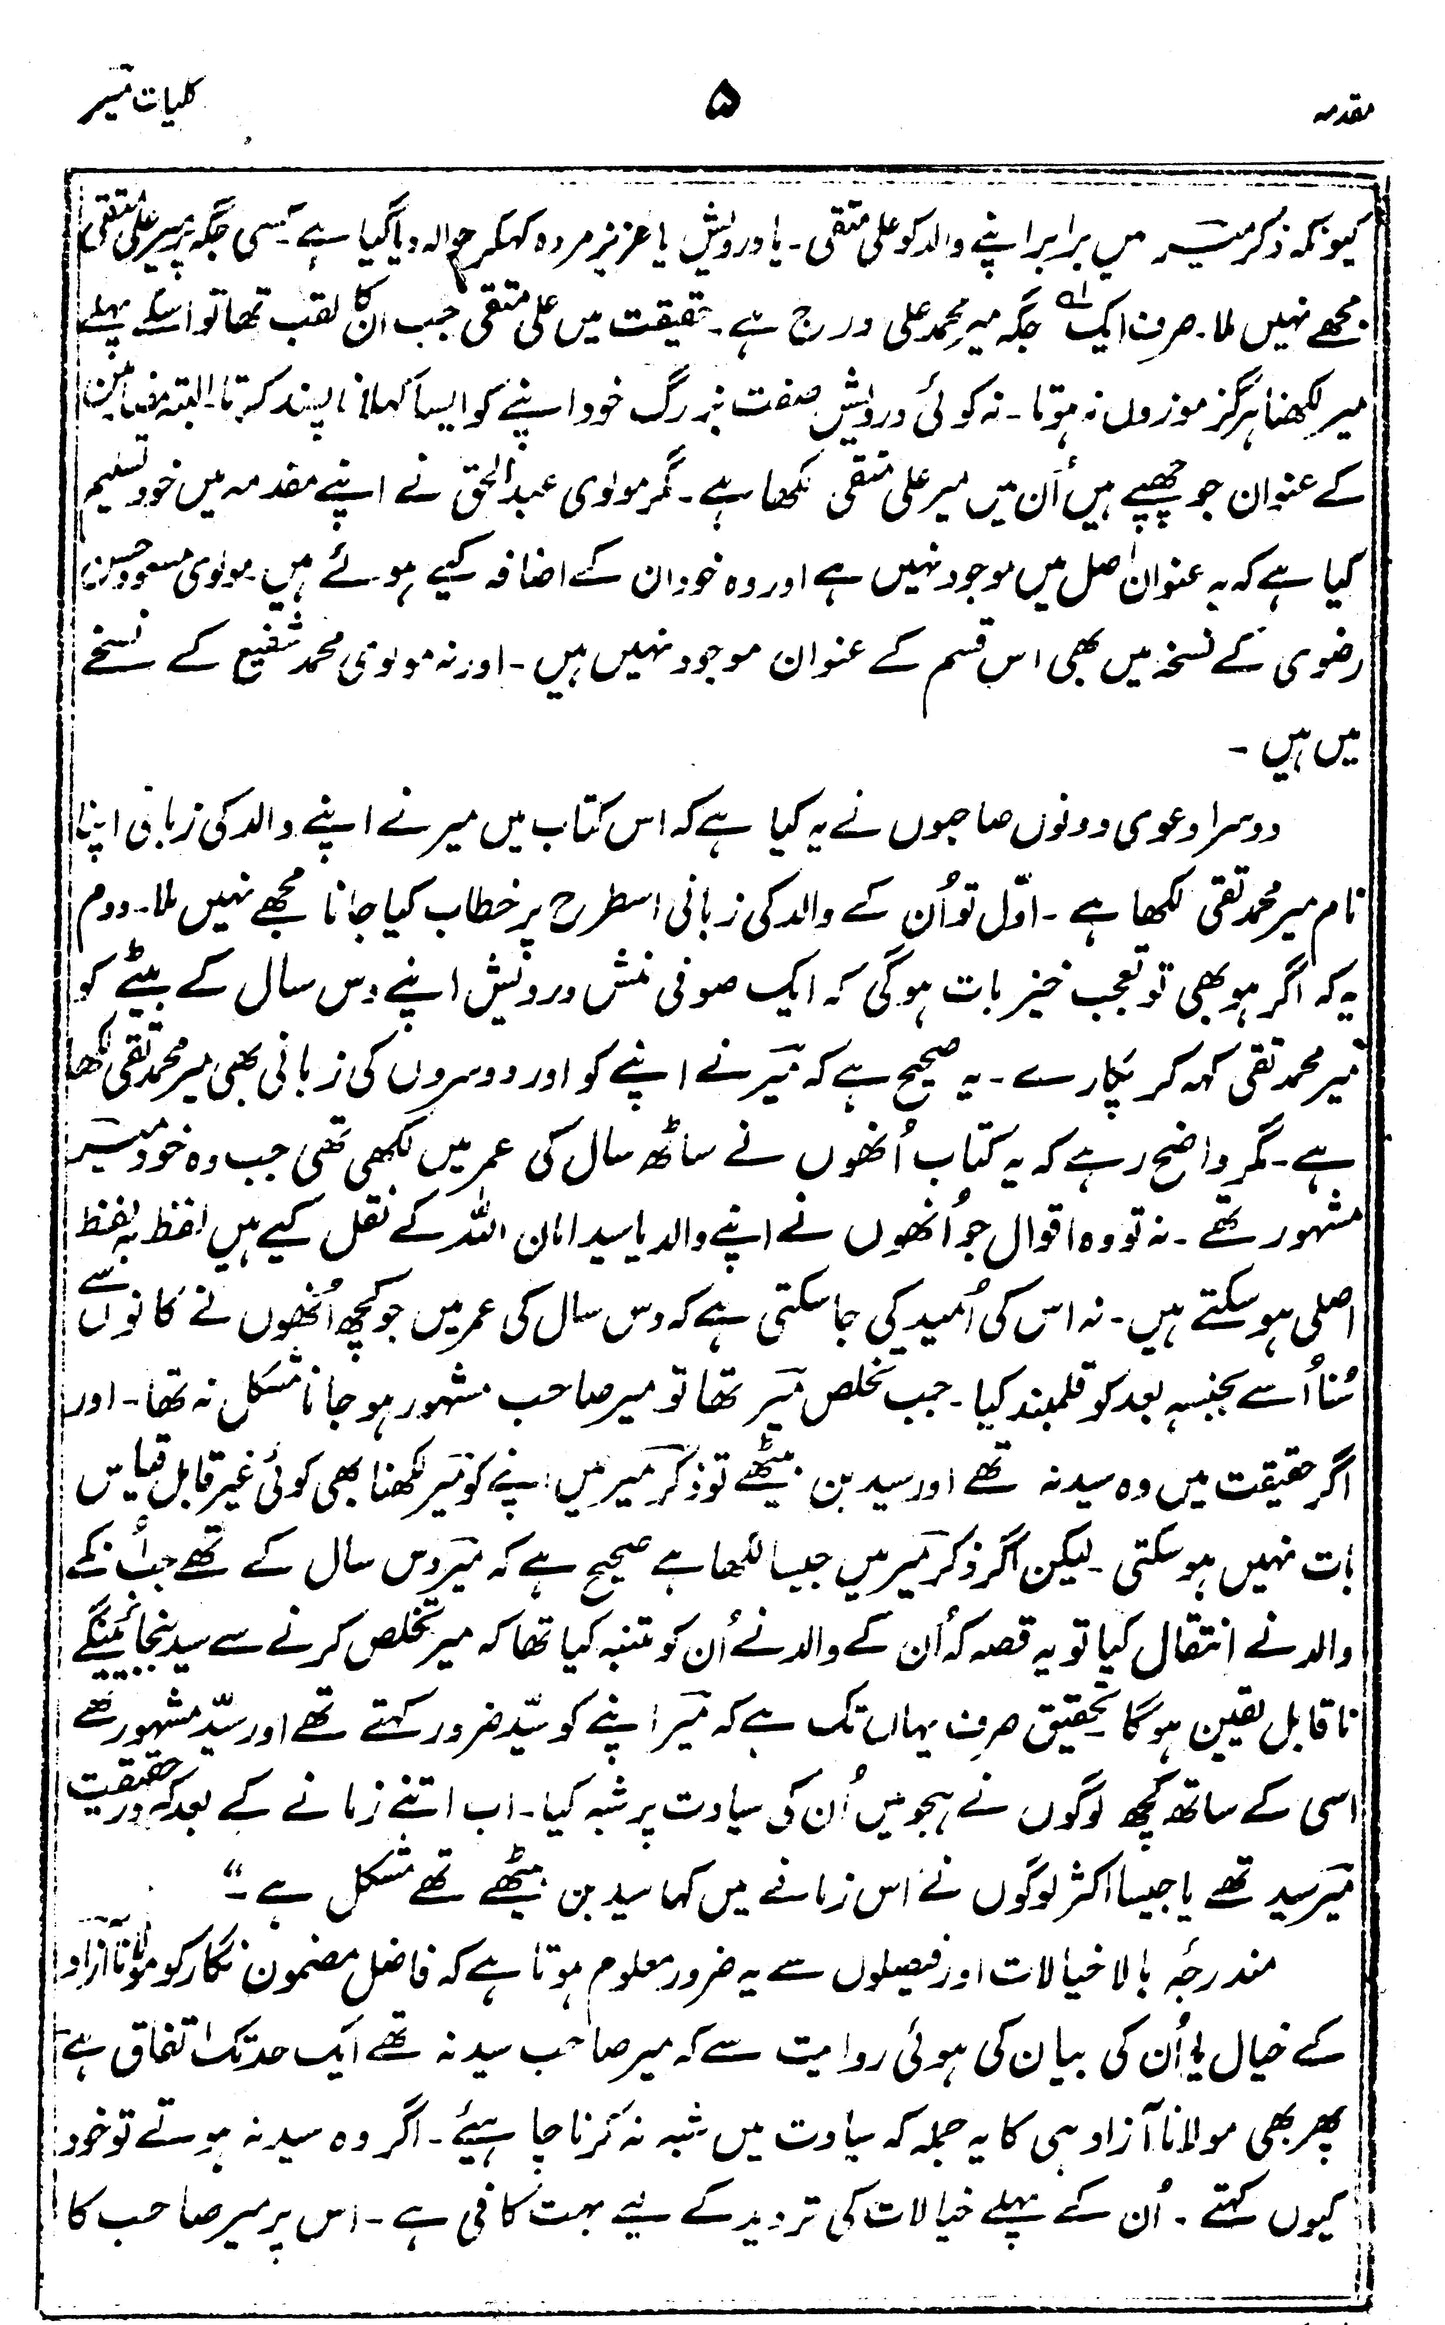 مقدمہ ۵ کلیات میر
کیونکہ ذکر میر میں برابر اپنے والد کو علی متقی۔ یا درویش یا عزیز مردہ کہکر حوالہ دیا گیا ہے۔ کسی جگہ پر میر علی متقی
مجھے نہیں ملا۔ صرف ایک جگہ میر محمد علی درج ہے۔ حقیقت میں علی متقی جب ان کا لقب تھا تو اسکے پہلے
میر لکھنا ہرگز موزوں نہ ہوتا۔ نہ کوئی درویش صفت بزرگ خود اپنے کو ایسا کہلانا پسند کرتا۔ البتہ مضامین
کے عنوان جو چھپے ہیں اُن میں میر علی متقی لکھا ہے۔ مگر مولوی عبدالحق نے اپنے مقدمہ میں خود تسلیم
کیا ہے کہ یہ عنوان اصل میں موجود نہیں ہے اور وہ خود ان کے اضافہ کیے ہوئے ہیں۔ مولوی مسعود حسن
رضوی کے نسخہ میں بھی اس قسم کے عنوان موجود نہیں ہیں۔ اور نہ مولوی محمد شفیع کے نسخے
میں ہیں۔
دوسرا دعوی دونوں صاحبوں نے یہ کیا ہے کہ اس کتاب میں میر نے اپنے والد کی زبانی اپنا
نام میر محمد تقی لکھا ہے۔ اوّل تو اُن کے والد کی زبانی اسطرح پر خطاب کیا جانا مجھے نہیں ملا۔ دوم
یہ کہ اگر ہو بھی تو تعجب خیز بات ہوگی کہ ایک صوفی منش درویش اپنے دس سال کے بیٹے کو
میر محمد تقی کہہ کر پکارے۔ یہ صحیح ہے کہ میر نے اپنے کو اور دوسروں کی زبانی بھی میر محمد تقی لکھا
ہے۔ مگر واضح رہے کہ یہ کتاب اُنھوں نے ساٹھ سال کی عمر میں لکھی تھی جب وہ خود میر
مشہور تھے۔ نہ تو وہ اقوال جو اُنھوں نے اپنے والد یا سید امان اللہ کے نقل کیے ہیں لفظ بہ لفظ
اصلی ہو سکتے ہیں۔ نہ اس کی اُمید کی جا سکتی ہے کہ دس سال کی عمر میں جو کچھ اُنھوں نے کانوں سے
سُنا اُسے بجنسہ بعد کو قلمبند کیا۔ جب تخلص میر تھا تو میر صاحب مشہور ہو جانا مشکل نہ تھا۔ اور
اگر حقیقت میں وہ سید نہ تھے اور سید بن بیٹھے تو ذکر میر میں اپنے کو میر لکھنا بھی کوئی غیر قابل قیاس
بات نہیں ہو سکتی۔ لیکن اگر ذکر میر میں جیسا لکھا ہے صحیح ہے کہ میر دس سال کے تھے جب اُنکے
والد نے انتقال کیا تو یہ قصہ کہ اُن کے والد نے اُن کو متنبہ کیا تھا کہ میر تخلص کرنے سے سید بنجائینگے
ناقابل یقین ہوگا تحقیق صرف یہاں تک ہے کہ میر اپنے کو سیّد ضرور کہتے تھے اور سیّد مشہور تھے
اسی کے ساتھ کچھ لوگوں نے ہجو میں اُن کی سیادت پر شبہ کیا۔ اب اتنے زمانے کے بعد کہ درحقیقت
میر سید تھے یا جیسا اکثر لوگوں نے اس زمانے میں کہا سید بن بیٹھے تھے مشکل ہے۔“
مندرجہ بالا خیالات اور فیصلوں سے یہ ضرور معلوم ہوتا ہے کہ فاضل مضمون نگار کو مولانا آزاد
کے خیال یا اُن کی بیان کی ہوئی روایت سے کہ میر صاحب سید نہ تھے ایک حد تک اتفاق ہے
پھر بھی مولانا آزاد ہی کا یہ جملہ کہ سیادت میں شبہ نہ کرنا چاہیئے۔ اگر وہ سید نہ ہوتے تو خود
کیوں کہتے۔ اُن کے پہلے خیالات کی تردید کے لیے بہت کافی ہے۔ اس پر میر صاحب کا